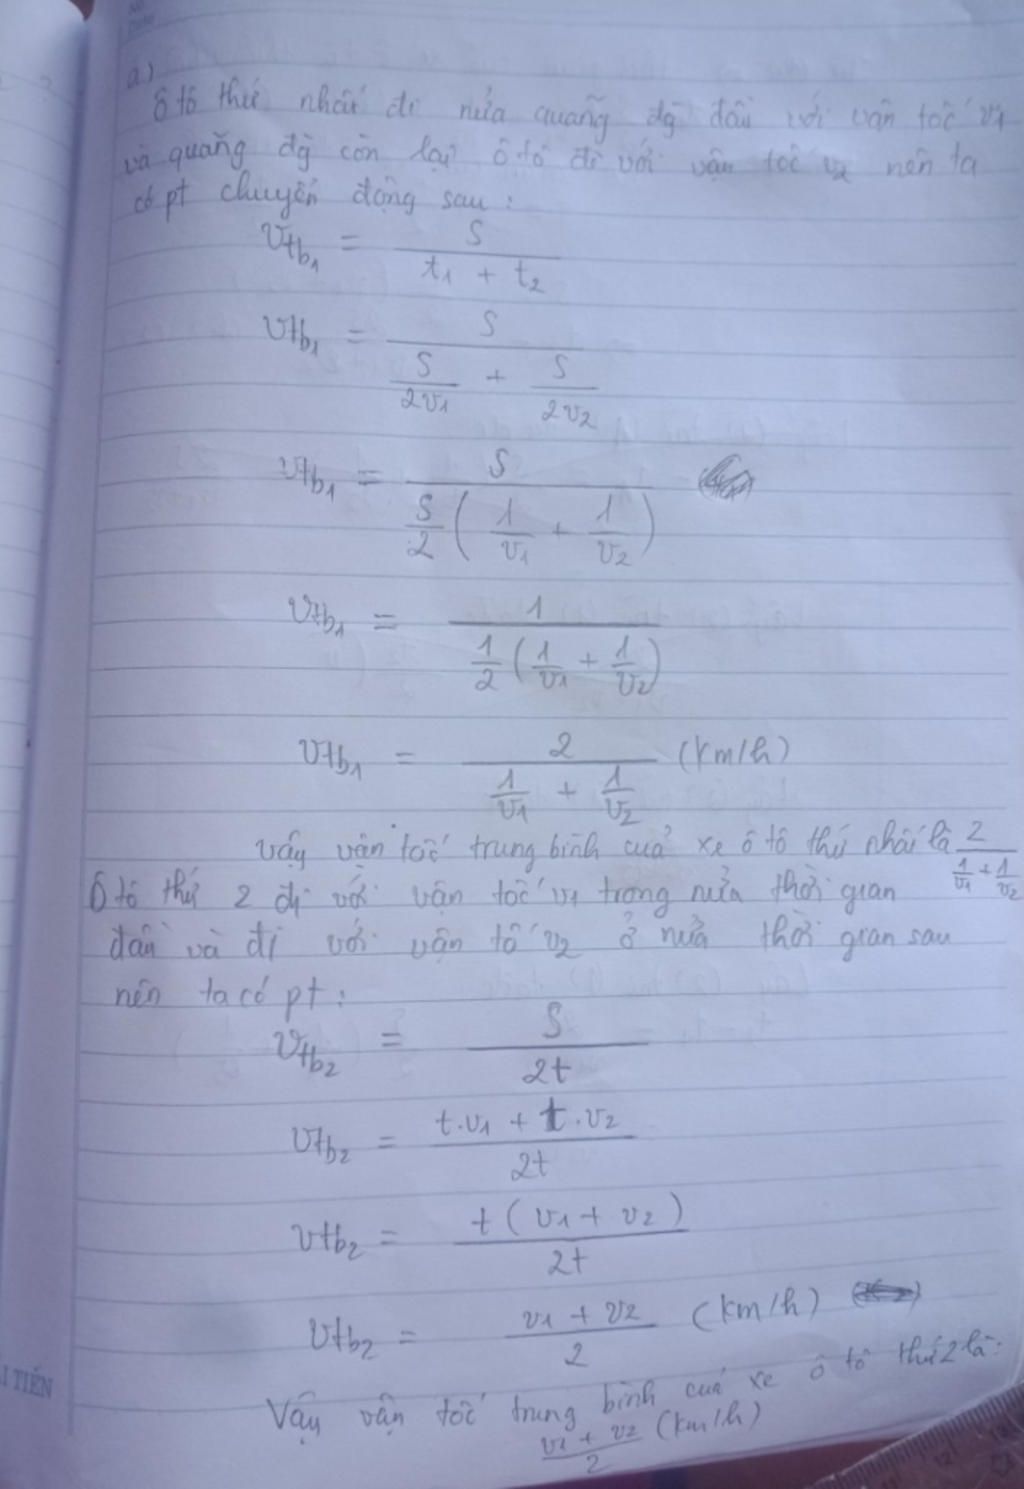 a)
ô tô thứ nhất đi nửa quãng đg đầu với vận tốc v1
và quãng đg còn lại ô tô đi với vận tốc v2 nên ta
có pt chuyển động sau:
vtb1 = S / (t1 + t2)
vtb1 = S / (S/2v1 + S/2v2)
vtb1 = S / (S/2 (1/v1 + 1/v2))
vtb1 = 1 / (1/2 (1/v1 + 1/v2))
vtb1 = 2 / (1/v1 + 1/v2) (km/h)
vậy vận tốc trung bình của xe ô tô thứ nhất là 2 / (1/v1 + 1/v2)
Ô tô thứ 2 đi với vận tốc v1 trong nửa thời gian
đầu và đi với vận tố v2 ở nửa thời gian sau
nên ta có pt:
vtb2 = S / 2t
vtb2 = (t.v1 + t.v2) / 2t
vtb2 = t(v1 + v2) / 2t
vtb2 = (v1 + v2) / 2 (km/h)
Vậy vận tốc trung bình của xe ô tô thứ 2 là:
(v1 + v2) / 2 (km/h)
TIẾN